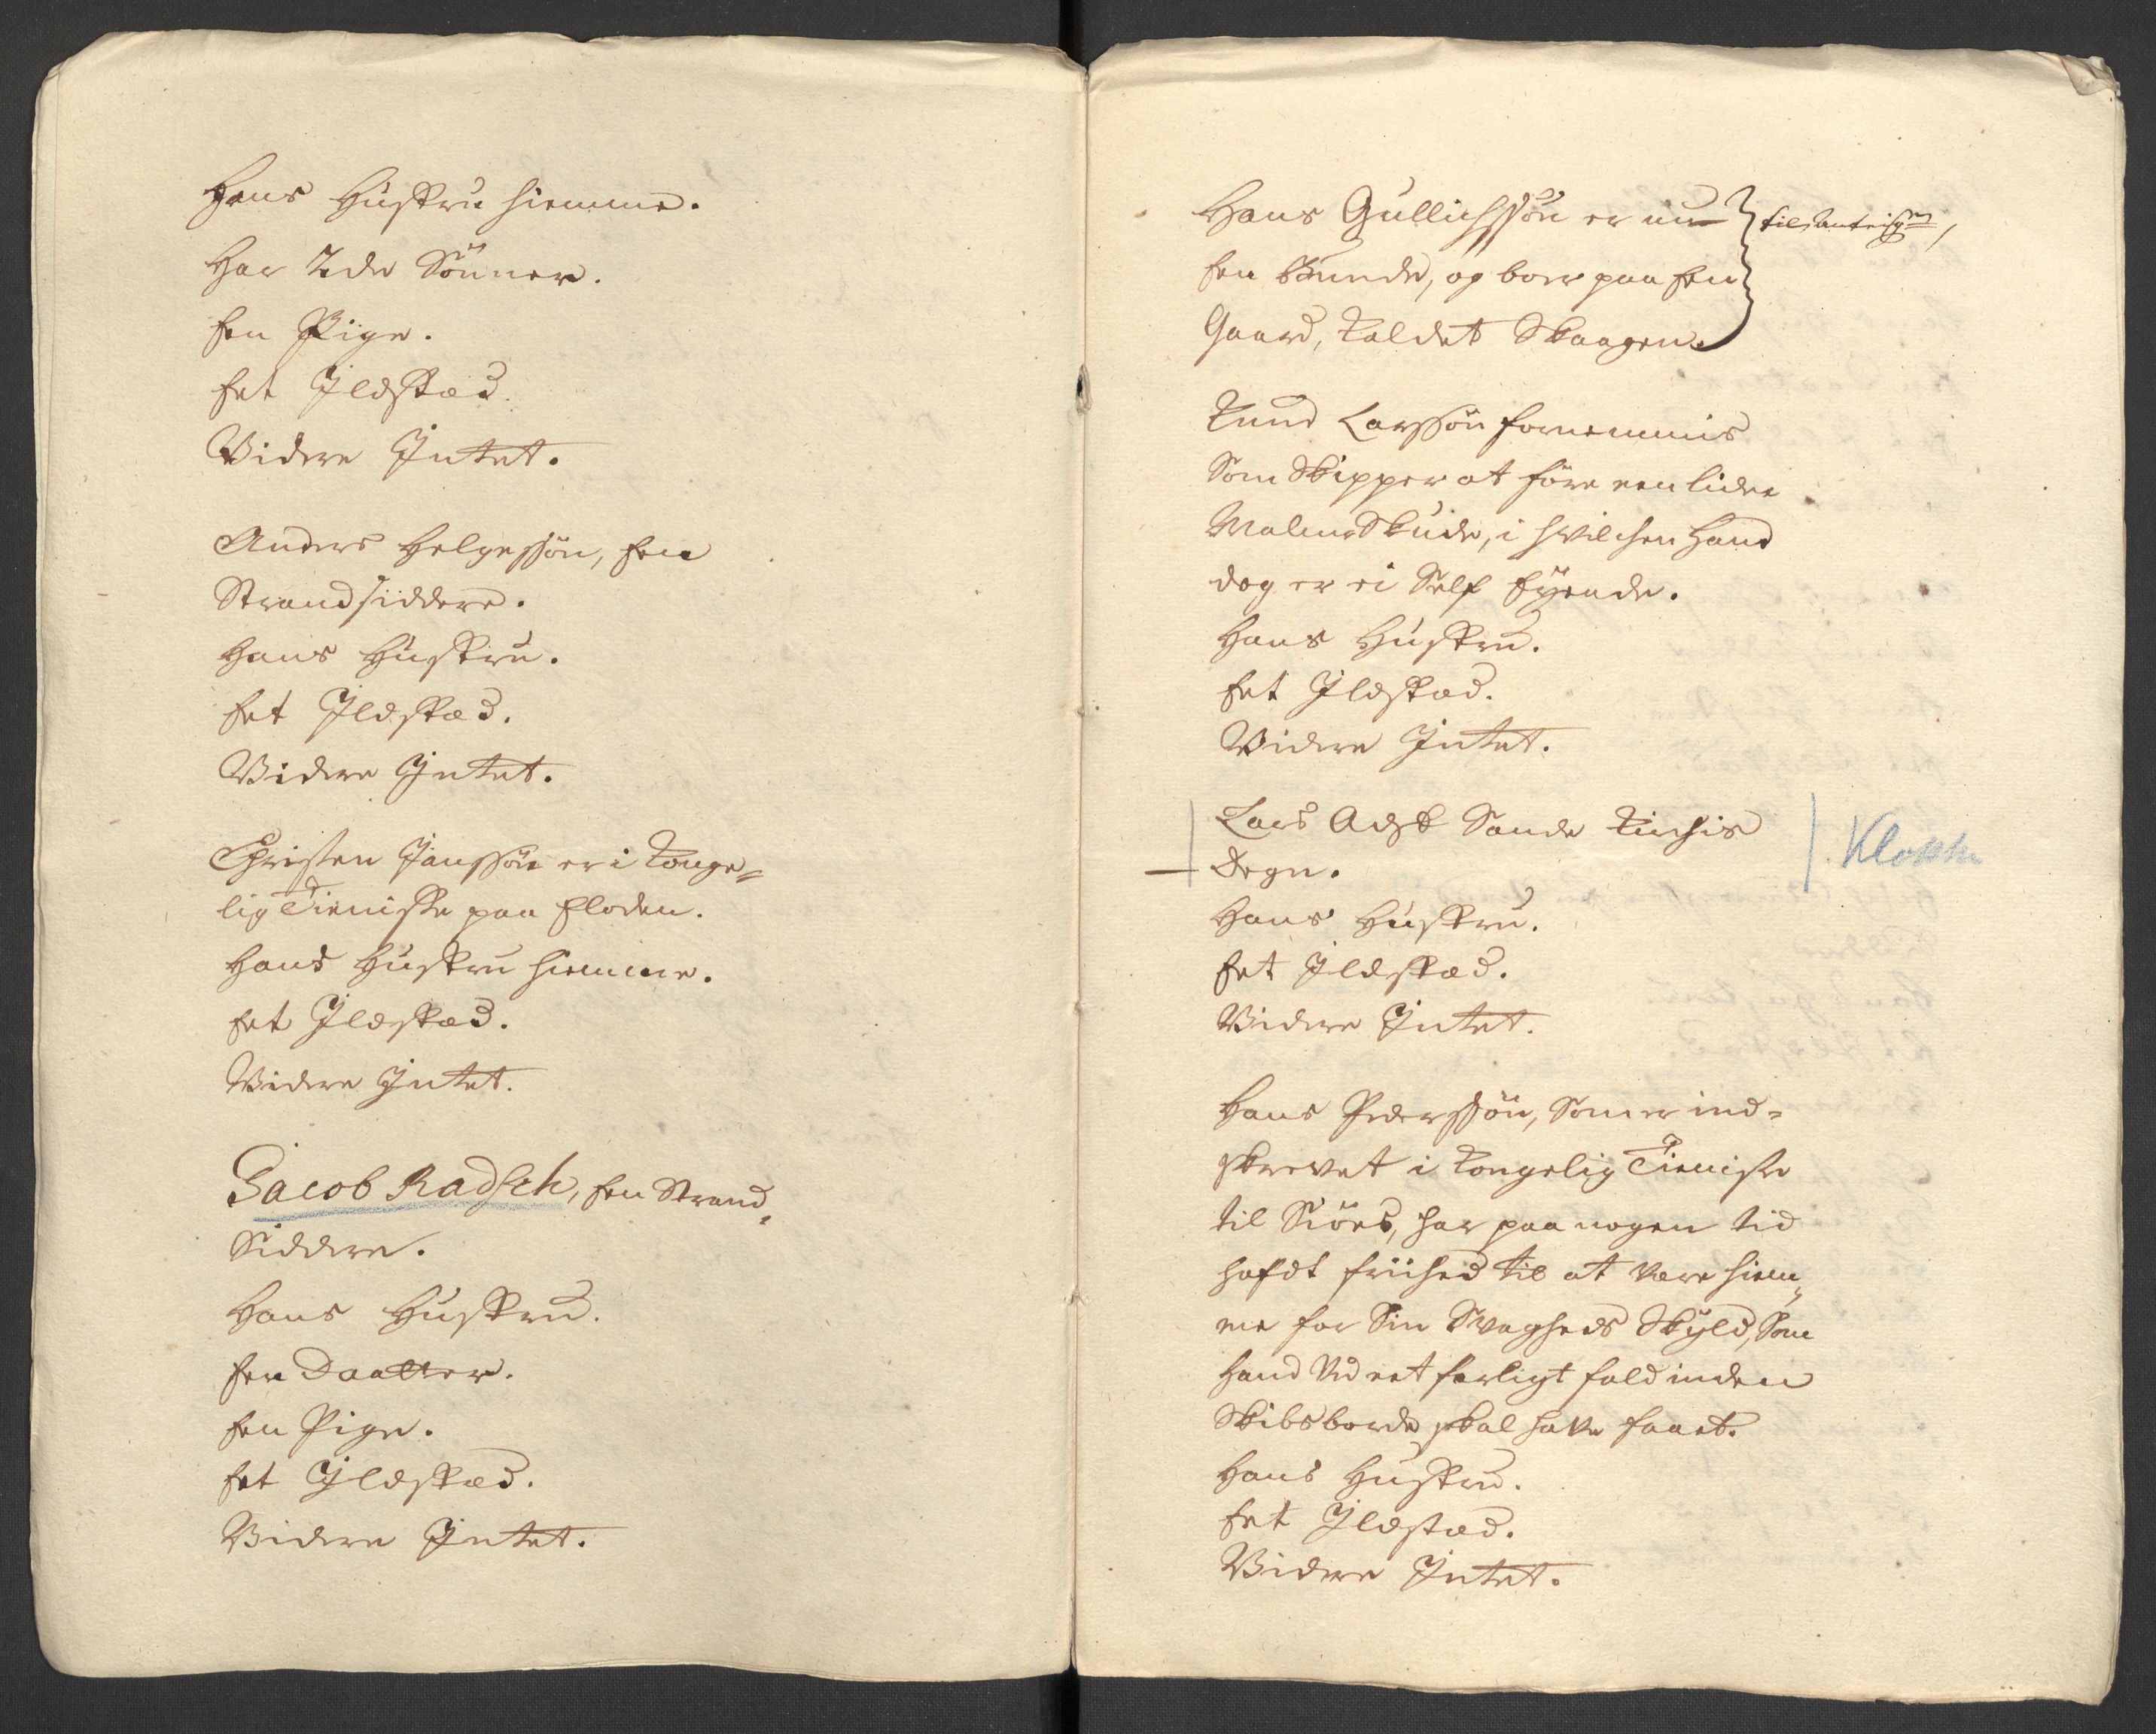 Hans Hustru hiemme.
Har 2de Sönner.
Een Pige.
Eet Ildstæd.
Videre Intet.
Anders Helgessön, Een
Strandsiddere.
Hans Hustru.
Eet Ildstæd.
Videre Intet.
Christen Janssön er i Konge=
lig Tieniste paa Floden.
Hans Hustru hiemme.
Eet Ildstæd.
Videre Intet.
Jacob Radsch, Een Strand=
Siddere.
Hans Hustru.
Een Daatter.
Een Pige.
Eet Ildstæd.
Videre Intet.
Hans Gullichssön er nu
Een Bunde, og boer paa Een
Gaard, Kaldet Skaagen.
Knud Larssön fornemmis
Som Skipper at före een liden
Malmskude, i hvilchen Hand
dog er ei Self Eyende.
Hans Hustru.
Eet Ildstæd.
Videre Intet.
Lars Sande Kirchis
Degn.
Klokker
Hans Hustru.
Eet Ildstæd.
Videre Intet.
Hans Pederssön, Som er ind=
skrevet i Kongelig Tieniste
til Siöes, har paa nogen tid
hafdt friihed til at være hiem=
me for Sin Svagheds Skyld, Som
Hand ved eet farligt fald inden
Skibsborde skal have faaet.
Hans Hustru.
Eet Ildstæd.
Videre Intet.